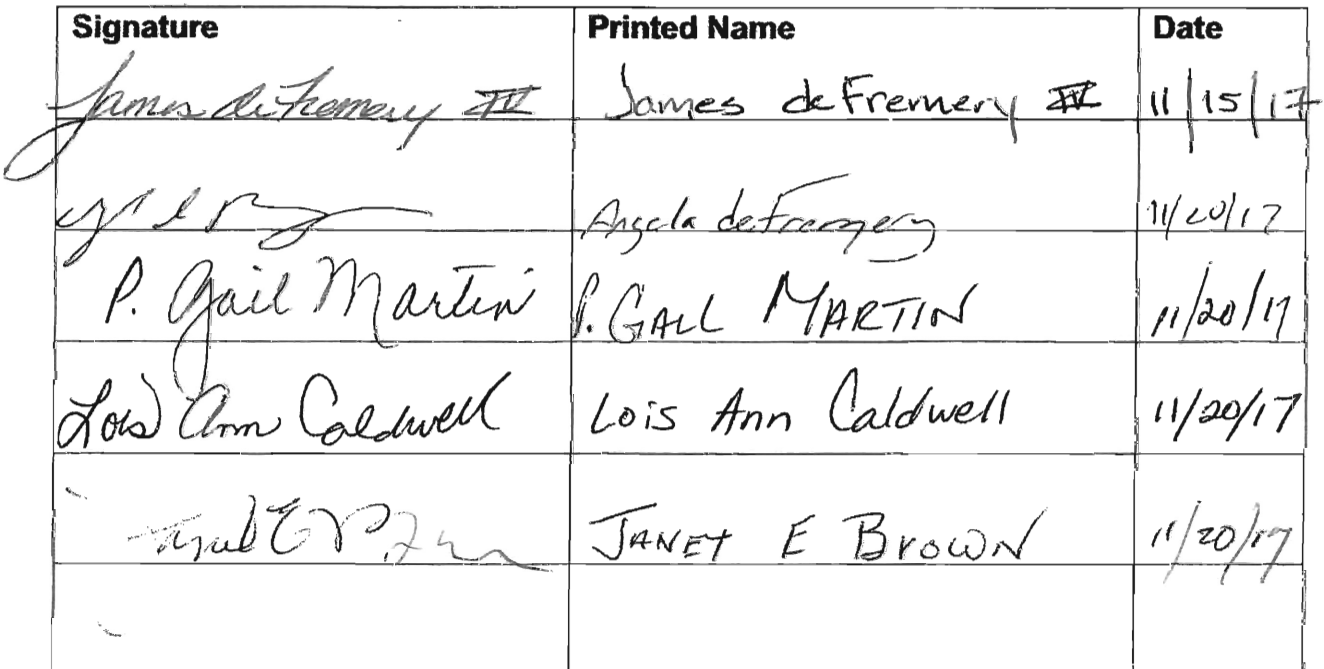 Signature Printed Name Date
James de Fremery IV James de Fremery IV 11/15/17
Angela de Fremery 11/20/17
P. Gail Martin P. GAIL MARTIN 11/20/17
Lois Ann Caldwell Lois Ann Caldwell 11/20/17
JANET E BROWN 11/20/17